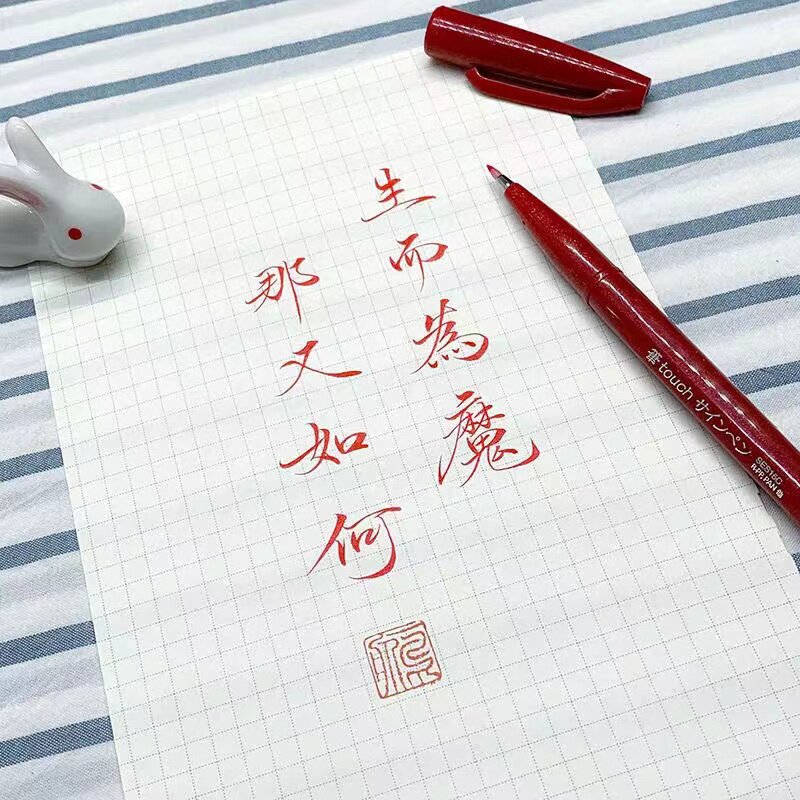 生而為魔
那又如何
筆touch サインペン
SES15C
P.PP.PAN